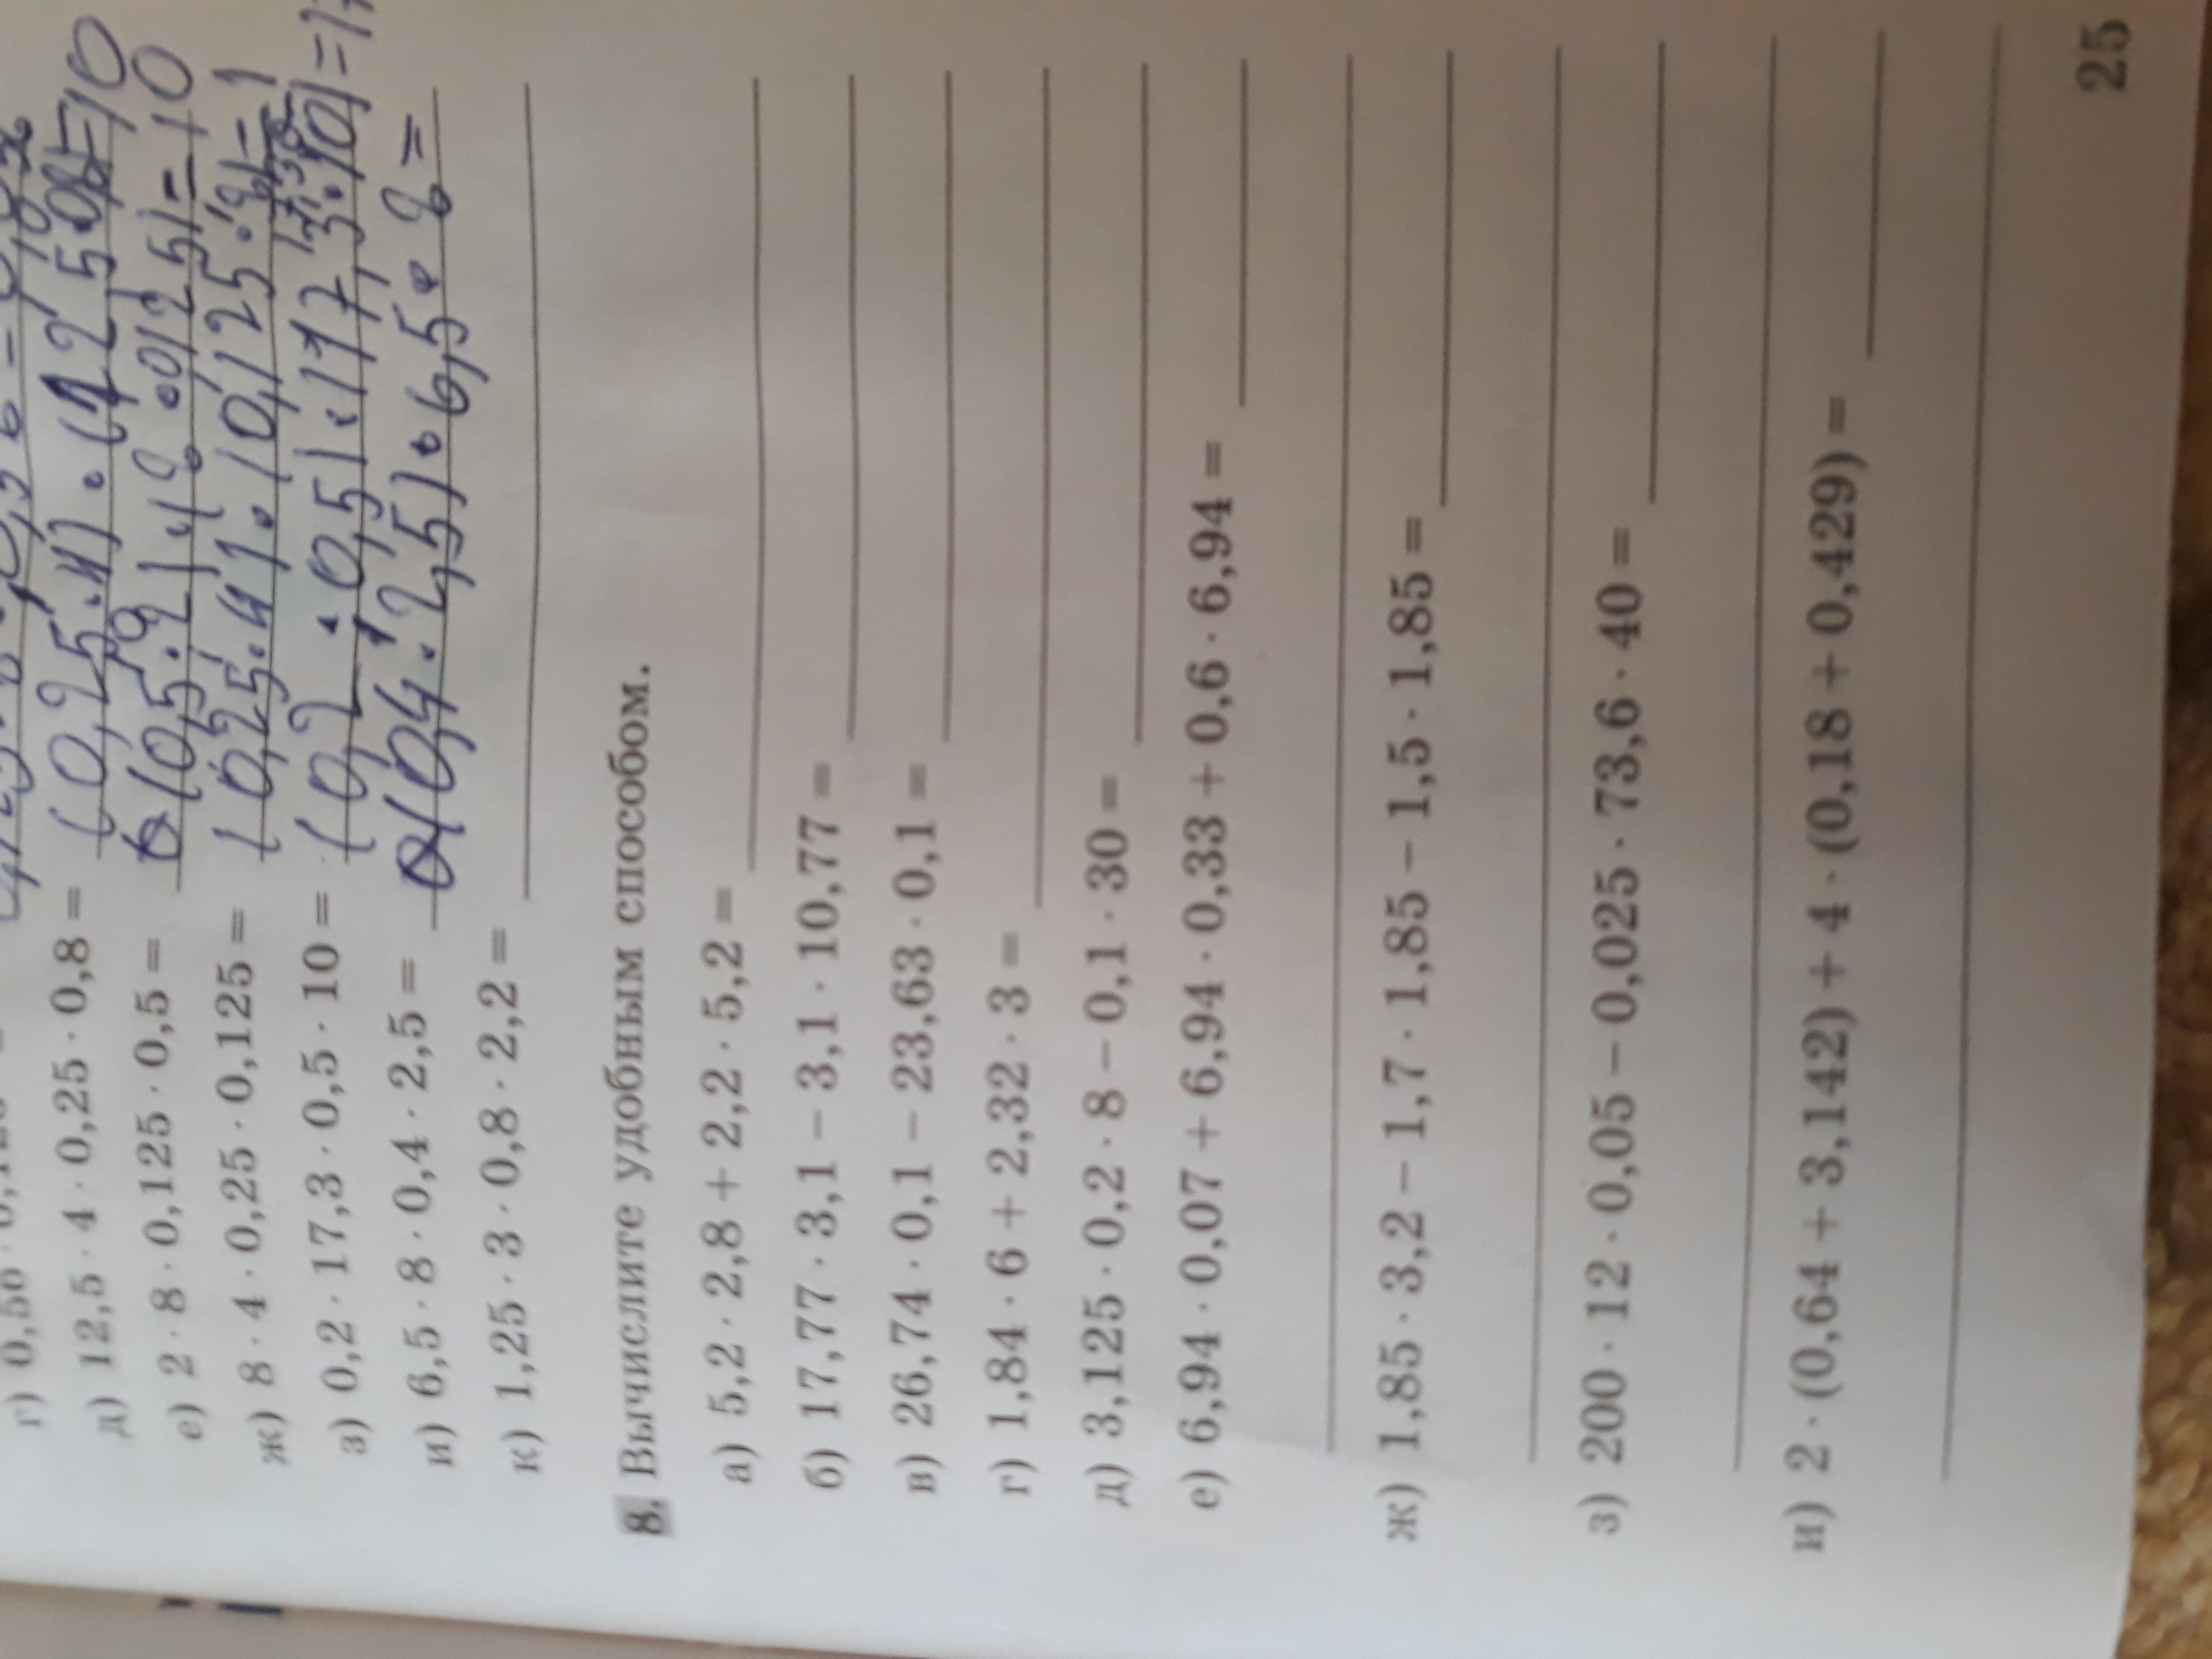 г) 0,56 ·
д) 12,5 · 4 · 0,25 · 0,8 = (0,25·4)·(12,5·0,8)=10
е) 2 · 8 · 0,125 · 0,5 = (0,5·2)·(8·0,125)=10
ж) 8 · 4 · 0,25 · 0,125 = (0,25·4)·(0,125·8)=1
з) 0,2 · 17,3 · 0,5 · 10 = (0,2·0,5)·(17,3·10)=17,
и) 6,5 · 8 · 0,4 · 2,5 = (0,4·2,5)·6,5·8=
к) 1,25 · 3 · 0,8 · 2,2 =
8. Вычислите удобным способом.
а) 5,2 · 2,8 + 2,2 · 5,2 =
б) 17,77 · 3,1 − 3,1 · 10,77 =
в) 26,74 · 0,1 − 23,63 · 0,1 =
г) 1,84 · 6 + 2,32 · 3 =
д) 3,125 · 0,2 · 8 − 0,1 · 30 =
е) 6,94 · 0,07 + 6,94 · 0,33 + 0,6 · 6,94 =
ж) 1,85 · 3,2 − 1,7 · 1,85 − 1,5 · 1,85 =
з) 200 · 12 · 0,05 − 0,025 · 73,6 · 40 =
и) 2 · (0,64 + 3,142) + 4 · (0,18 + 0,429) =
25